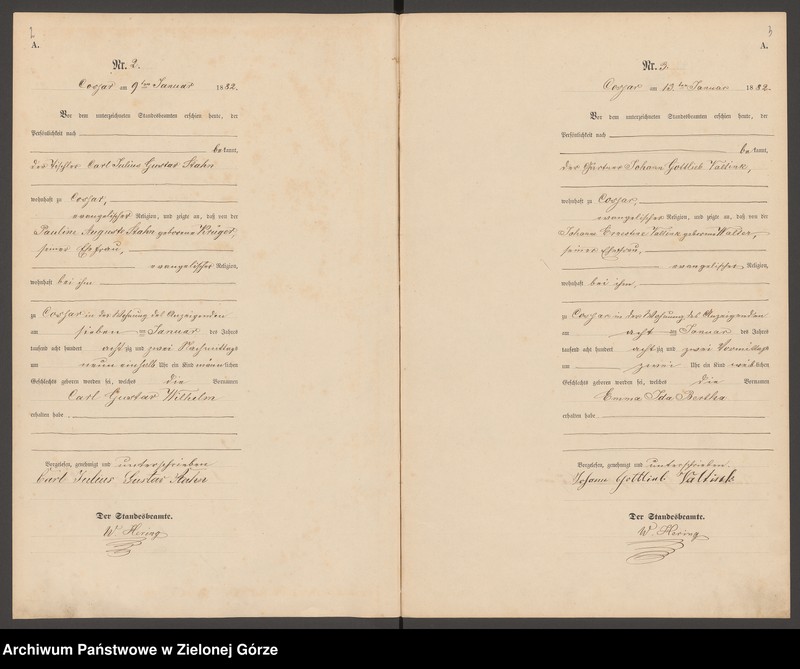 2
A.
Nr. 2.
Cossar am 9ten Januar 1882.
Vor dem unterzeichneten Standesbeamten erschien heute, der
Persönlichkeit nach
bekannt,
der Tischler Carl Julius Gustav Stahn
wohnhaft zu Cossar,
evangelischer Religion, und zeigte an, daß von der
Pauline Auguste Stahn geborene Krüger,
seiner Ehefrau,
evangelischer Religion,
wohnhaft bei ihm
zu Cossar in der Wohnung des Anzeigenden
am sieben ten Januar des Jahres
tausend acht hundert achtzig und zwei Nachmittags
um neun einhalb Uhr ein Kind männlichen
Geschlechts geboren worden sei, welches die Vornamen
Carl Gustav Wilhelm
erhalten habe.
Vorgelesen, genehmigt und unterschrieben
Carl Julius Gustav Stahn
Der Standesbeamte.
W. Hering
3
A.
Nr. 3.
Cossar am 13ten Januar 1882.
Vor dem unterzeichneten Standesbeamten erschien heute, der
Persönlichkeit nach
bekannt,
der Gärtner Johann Gottlieb
wohnhaft zu Cossar,
evangelischer Religion, und zeigte an, daß von der
Johann Ernestine geborene Walter,
seiner Ehefrau,
evangelischer Religion,
wohnhaft bei ihm,
zu Cossar in der Wohnung des Anzeigenden
am acht ten Januar des Jahres
tausend acht hundert achtzig und zwei Vormittags
um zwei Uhr ein Kind weiblichen
Geschlechts geboren worden sei, welches die Vornamen
Emma Ida Bertha
erhalten habe.
Vorgelesen, genehmigt und unterschrieben.
Johann Gottlieb
Der Standesbeamte.
W. Hering
Archiwum Państwowe w Zielonej Górze